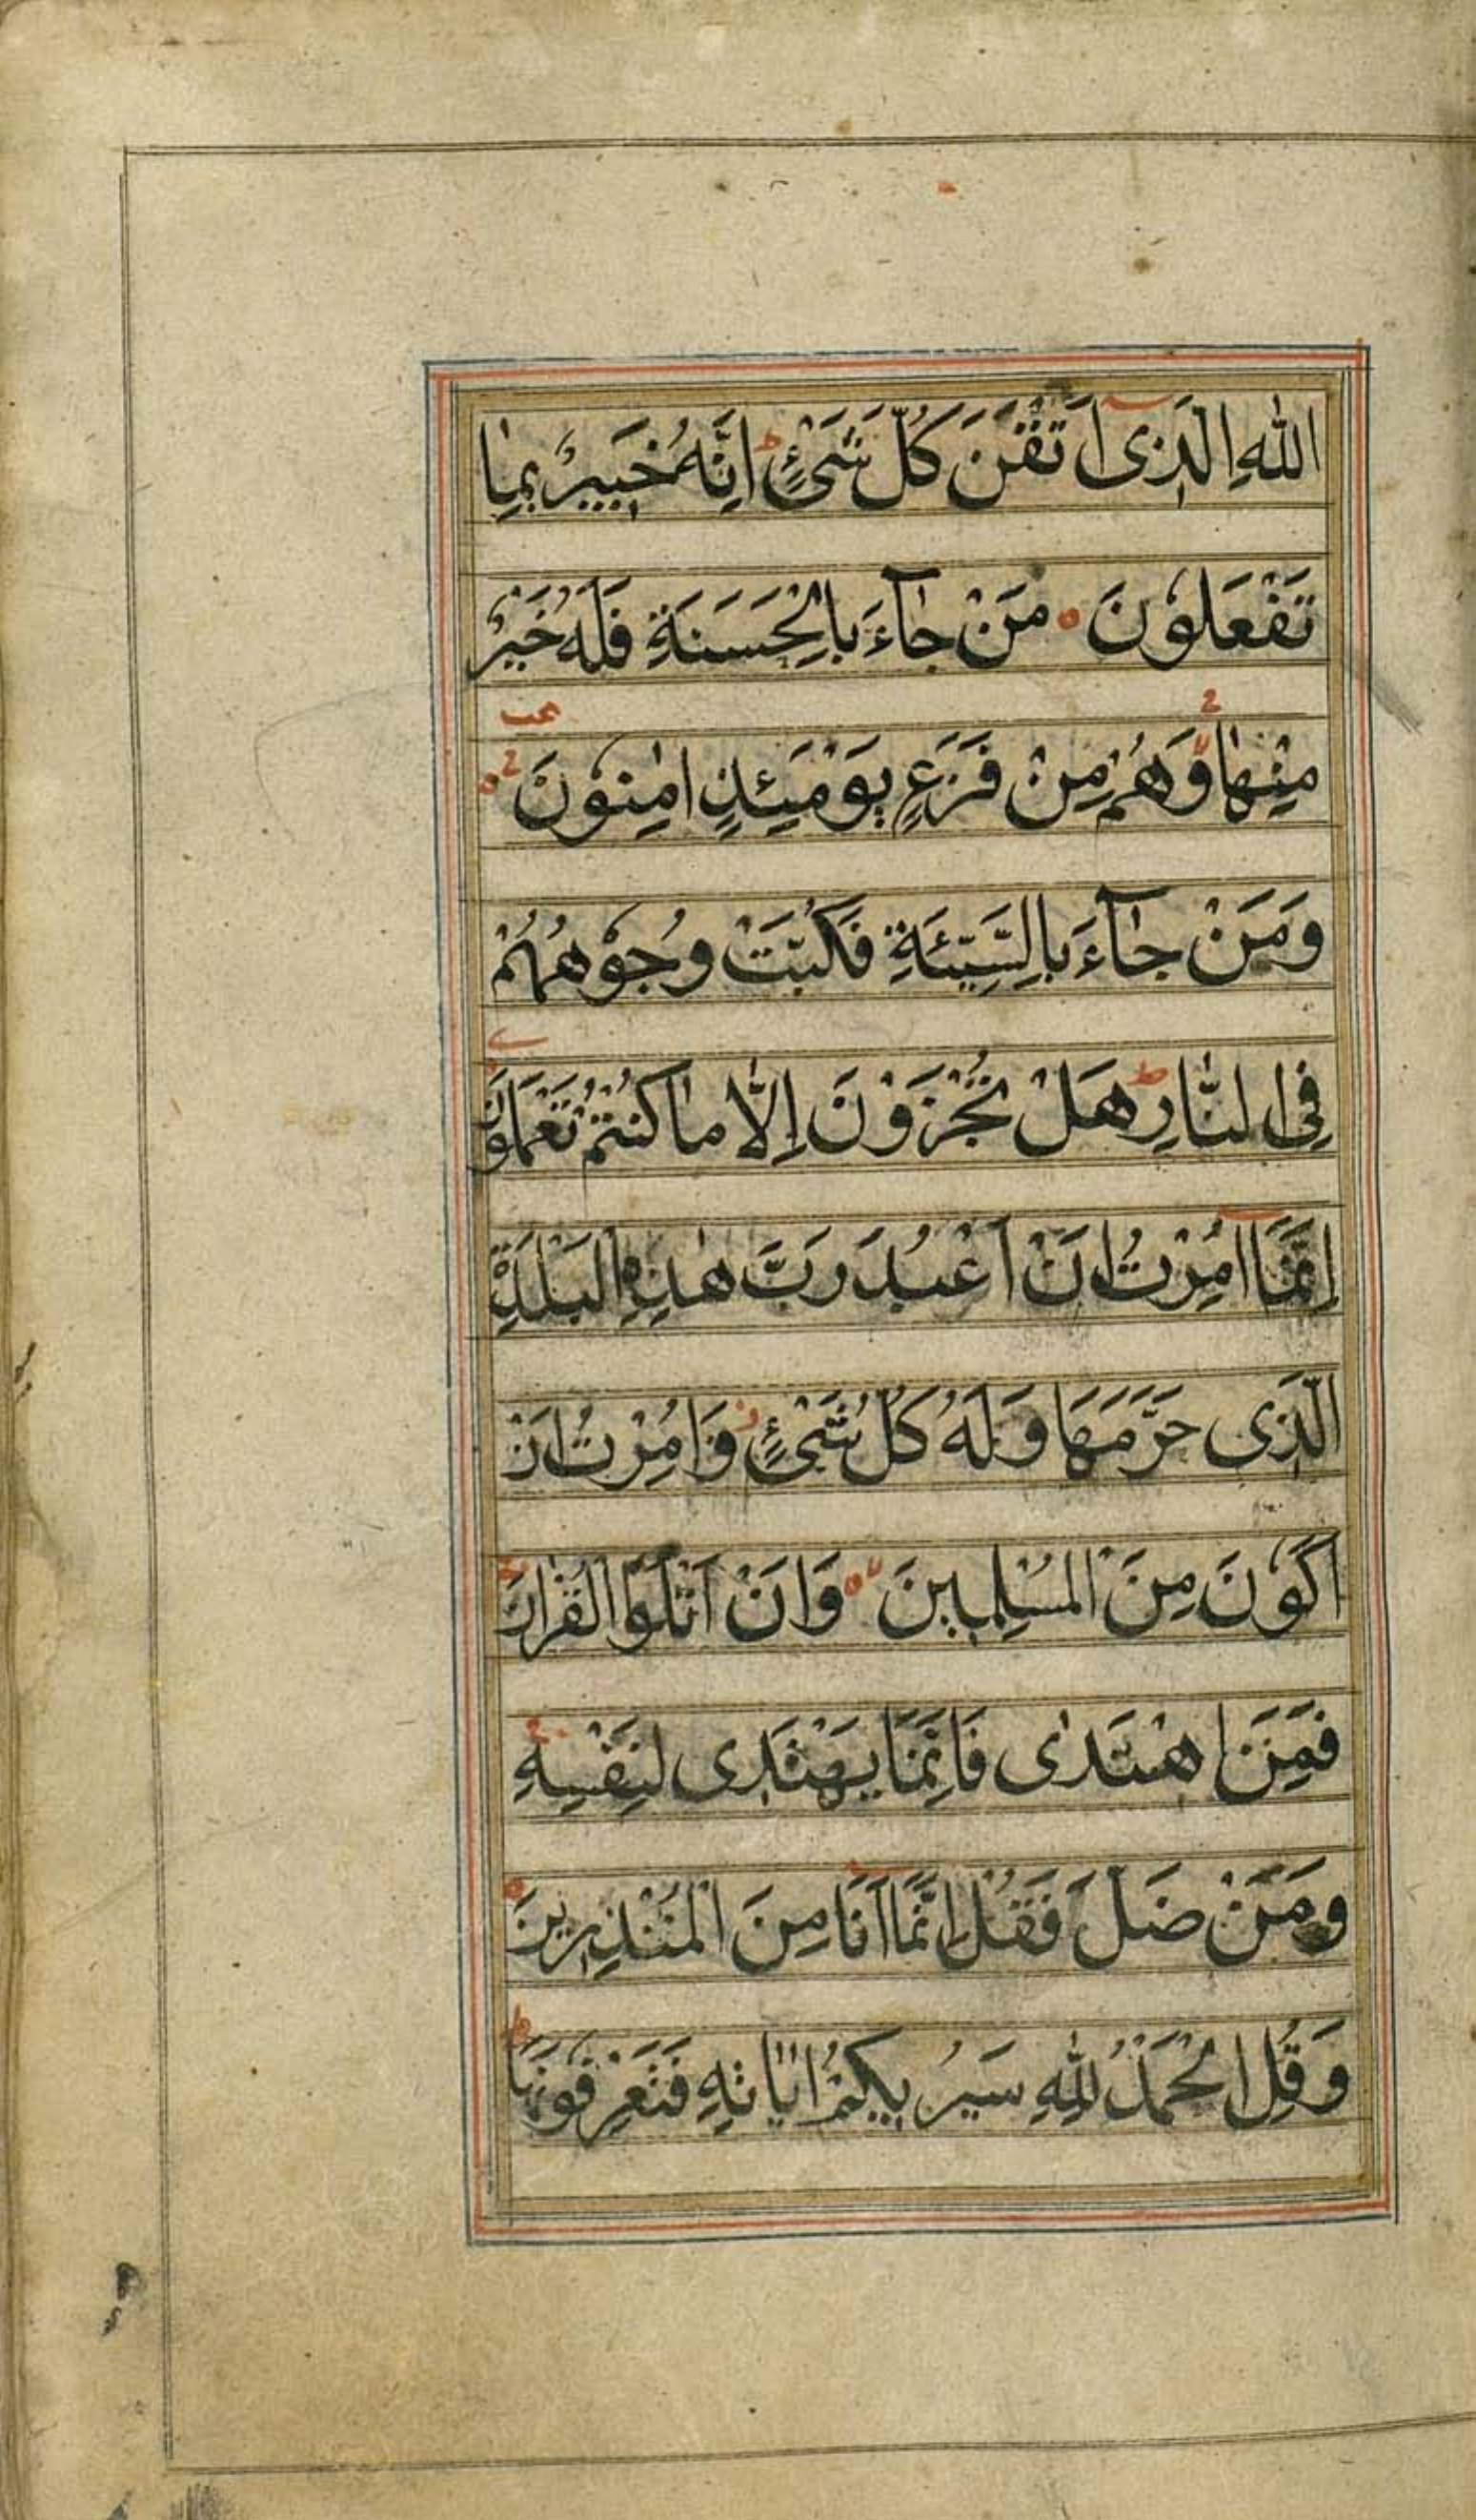 اللهِ الَّذِى اَتْقَنَ كُلَّ شَىْءٍ ط اِنَّهُ خَبِيرٌ بِمٰا
تَفْعَلُونَ ۰ مَنْ جٰآءَ بِالْحَسَنَةِ فَلَهُ خَيْرٌ
مِنْهٰا وَهُمْ مِنْ فَزَعٍ يَوْمَئِذٍ اٰمِنُونَ ۰
وَمَنْ جٰآءَ بِالسَّيِّئَةِ فَكُبَّتْ وُجُوهُهُمْ
فِى النّٰارِ ط هَلْ تُجْزَوْنَ اِلّٰا مٰا كُنْتُمْ تَعْمَلُونَ
اِنَّمَا اُمِرْتُ اَنْ اَعْبُدَ رَبَّ هٰذِهِ الْبَلْدَةِ
الَّذِى حَرَّمَهَا وَلَهُ كُلُّ شَىْءٍ وَاُمِرْتُ اَنْ
اَكُونَ مِنَ الْمُسْلِمِينَ ۰ وَاَنْ اَتْلُوَا الْقُرْاٰنَ
فَمَنِ اهْتَدٰى فَاِنَّمَا يَهْتَدِى لِنَفْسِهِ
وَمَنْ ضَلَّ فَقُلْ اِنَّمَا اَنَا مِنَ الْمُنْذِرِينَ ۰
وَقُلِ الْحَمْدُ لِلّٰهِ سَيُرِيكُمْ اٰيٰاتِهِ فَتَعْرِفُونَهَا ط